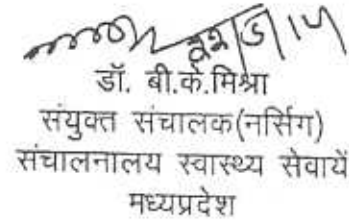 डॉ. बी.के.मिश्रा
संयुक्त संचालक(नर्सिग)
संचालनालय स्वास्थ्य सेवायें
मध्यप्रदेश